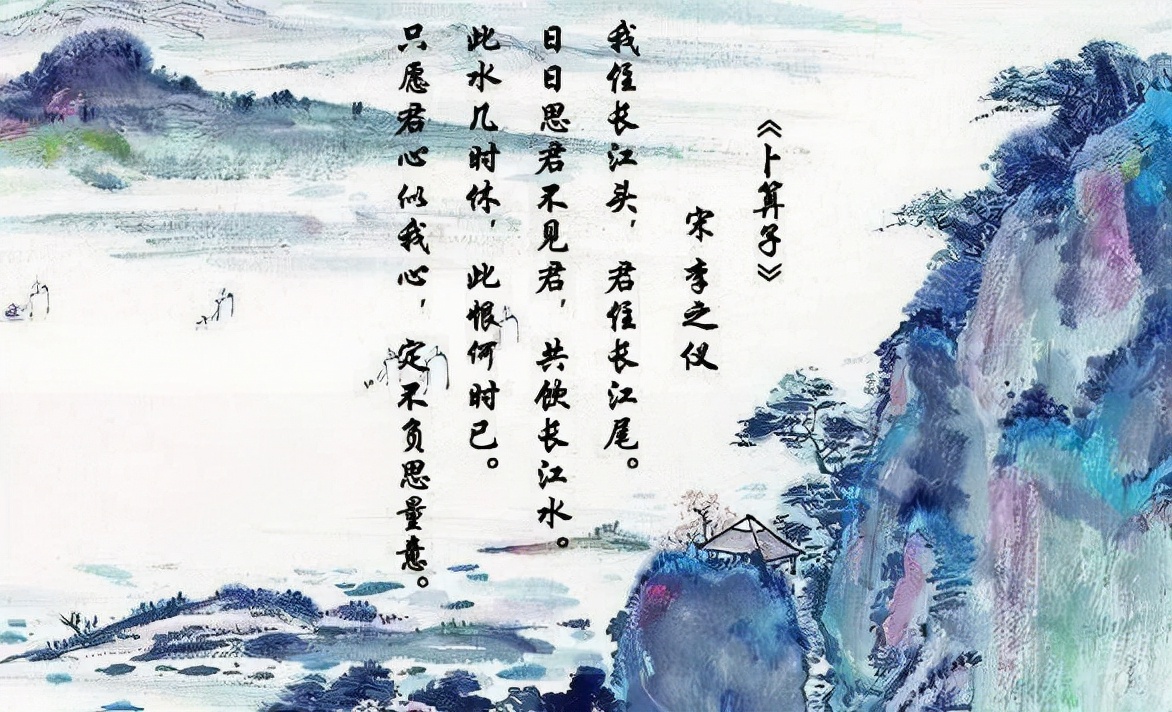 《卜算子》
宋 李之仪
我住长江头，君住长江尾。
日日思君不见君，共饮长江水。
此水几时休，此恨何时已。
只愿君心似我心，定不负思量意。